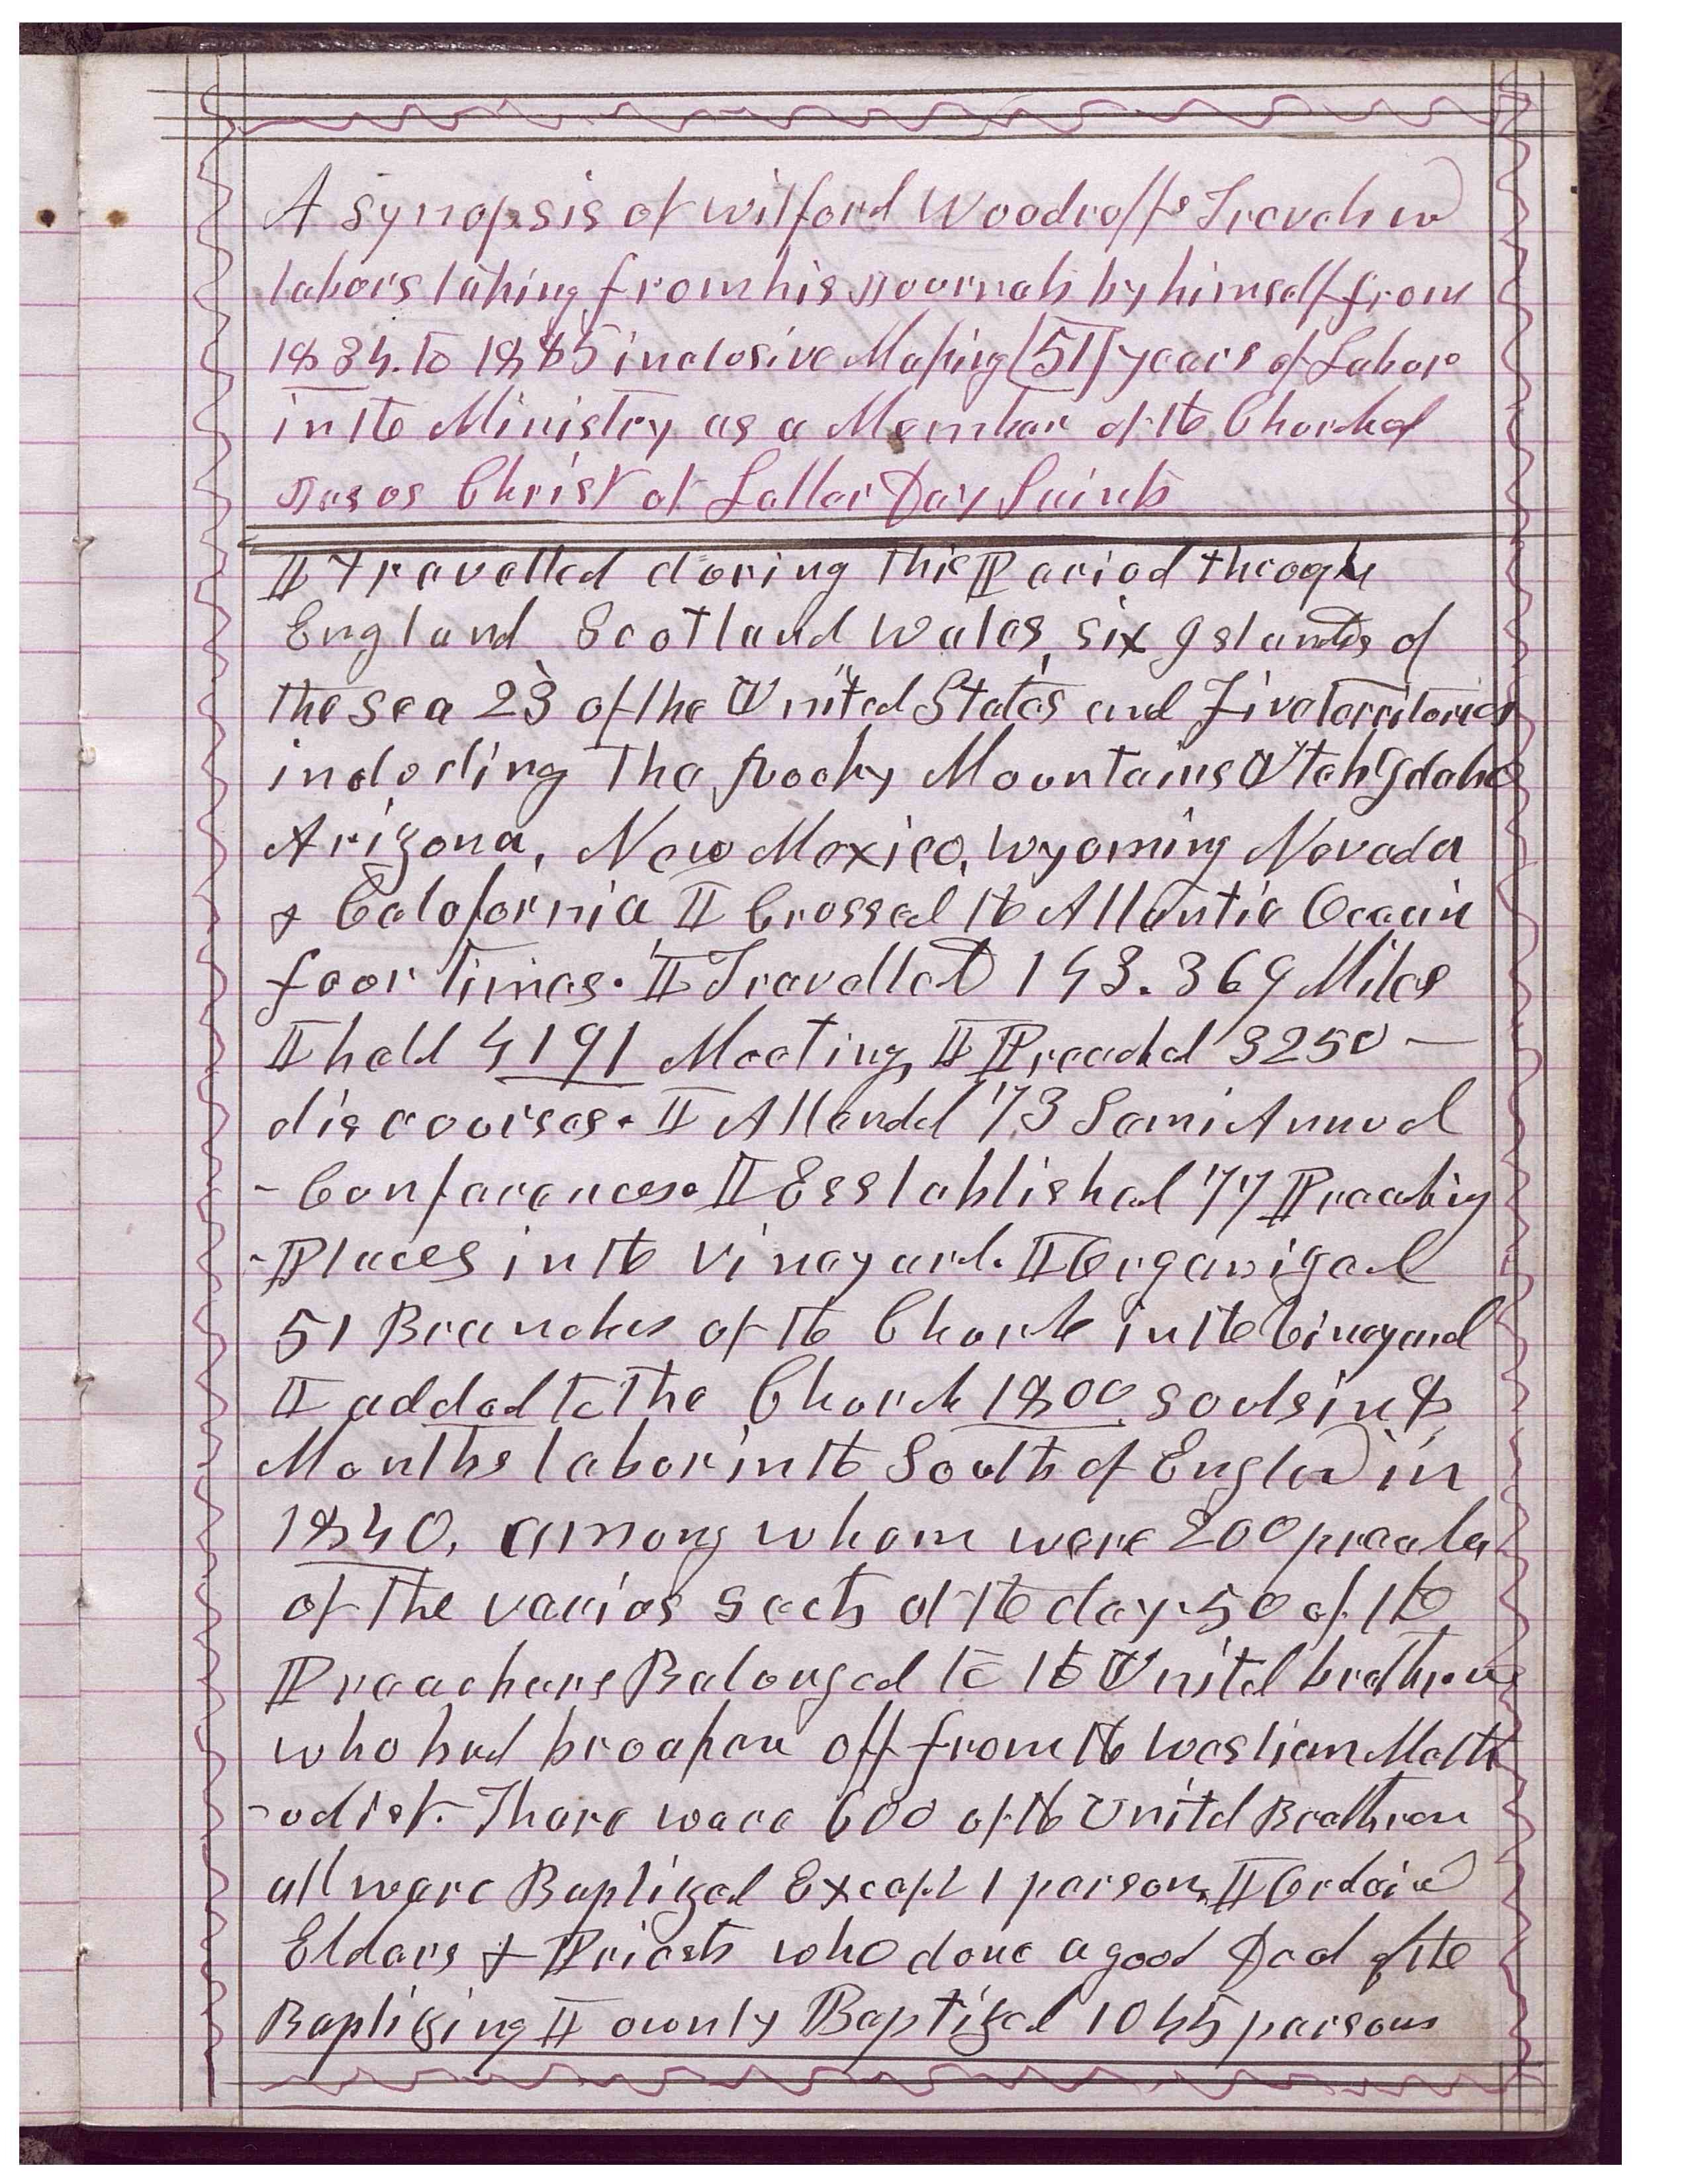 A synopsis of Wilford Woodruffs Travels &
labors taking from his Journals by himself from
1834. to 1885 inclusive Making [51] years of Labor
in the Ministry as a Member of the Church of
Jesus Christ of Latter Day Saints
I travelled during this Period through
England Scotland Wales, six Islands of
the sea 23 of the United States and Five territories
including The Rocky Mountains Utah Idaho
Arizona, New Mexico, Wyoming Nevada
& Calofornia I Crossed the Atlantic Ocean
four times. I Travelled 143.369 Miles
I held 4191 Meeting, I Preached 3250 —
discourses. I Attended 73 Semi Annual
- Conferences. I Esstablished 77 Preaching
- Places in the Vineyard. I Organized
51 Branches of the Church in the Vineyard
I added to the Church 1800 souls in 8
Months labor in the South of England in
1840, among whom were 200 preachers
of the varios sects of the day. 50 of the
Preachers Belonged to the United brethren
who had broaken off from the Weslian Meth
-odist. There were 600 of the United Breathren
all were Baptized Except 1 person, I Ordained
Elders & Priests who done a good Deal of the
Baptizing I ownly Baptized 1045 persons